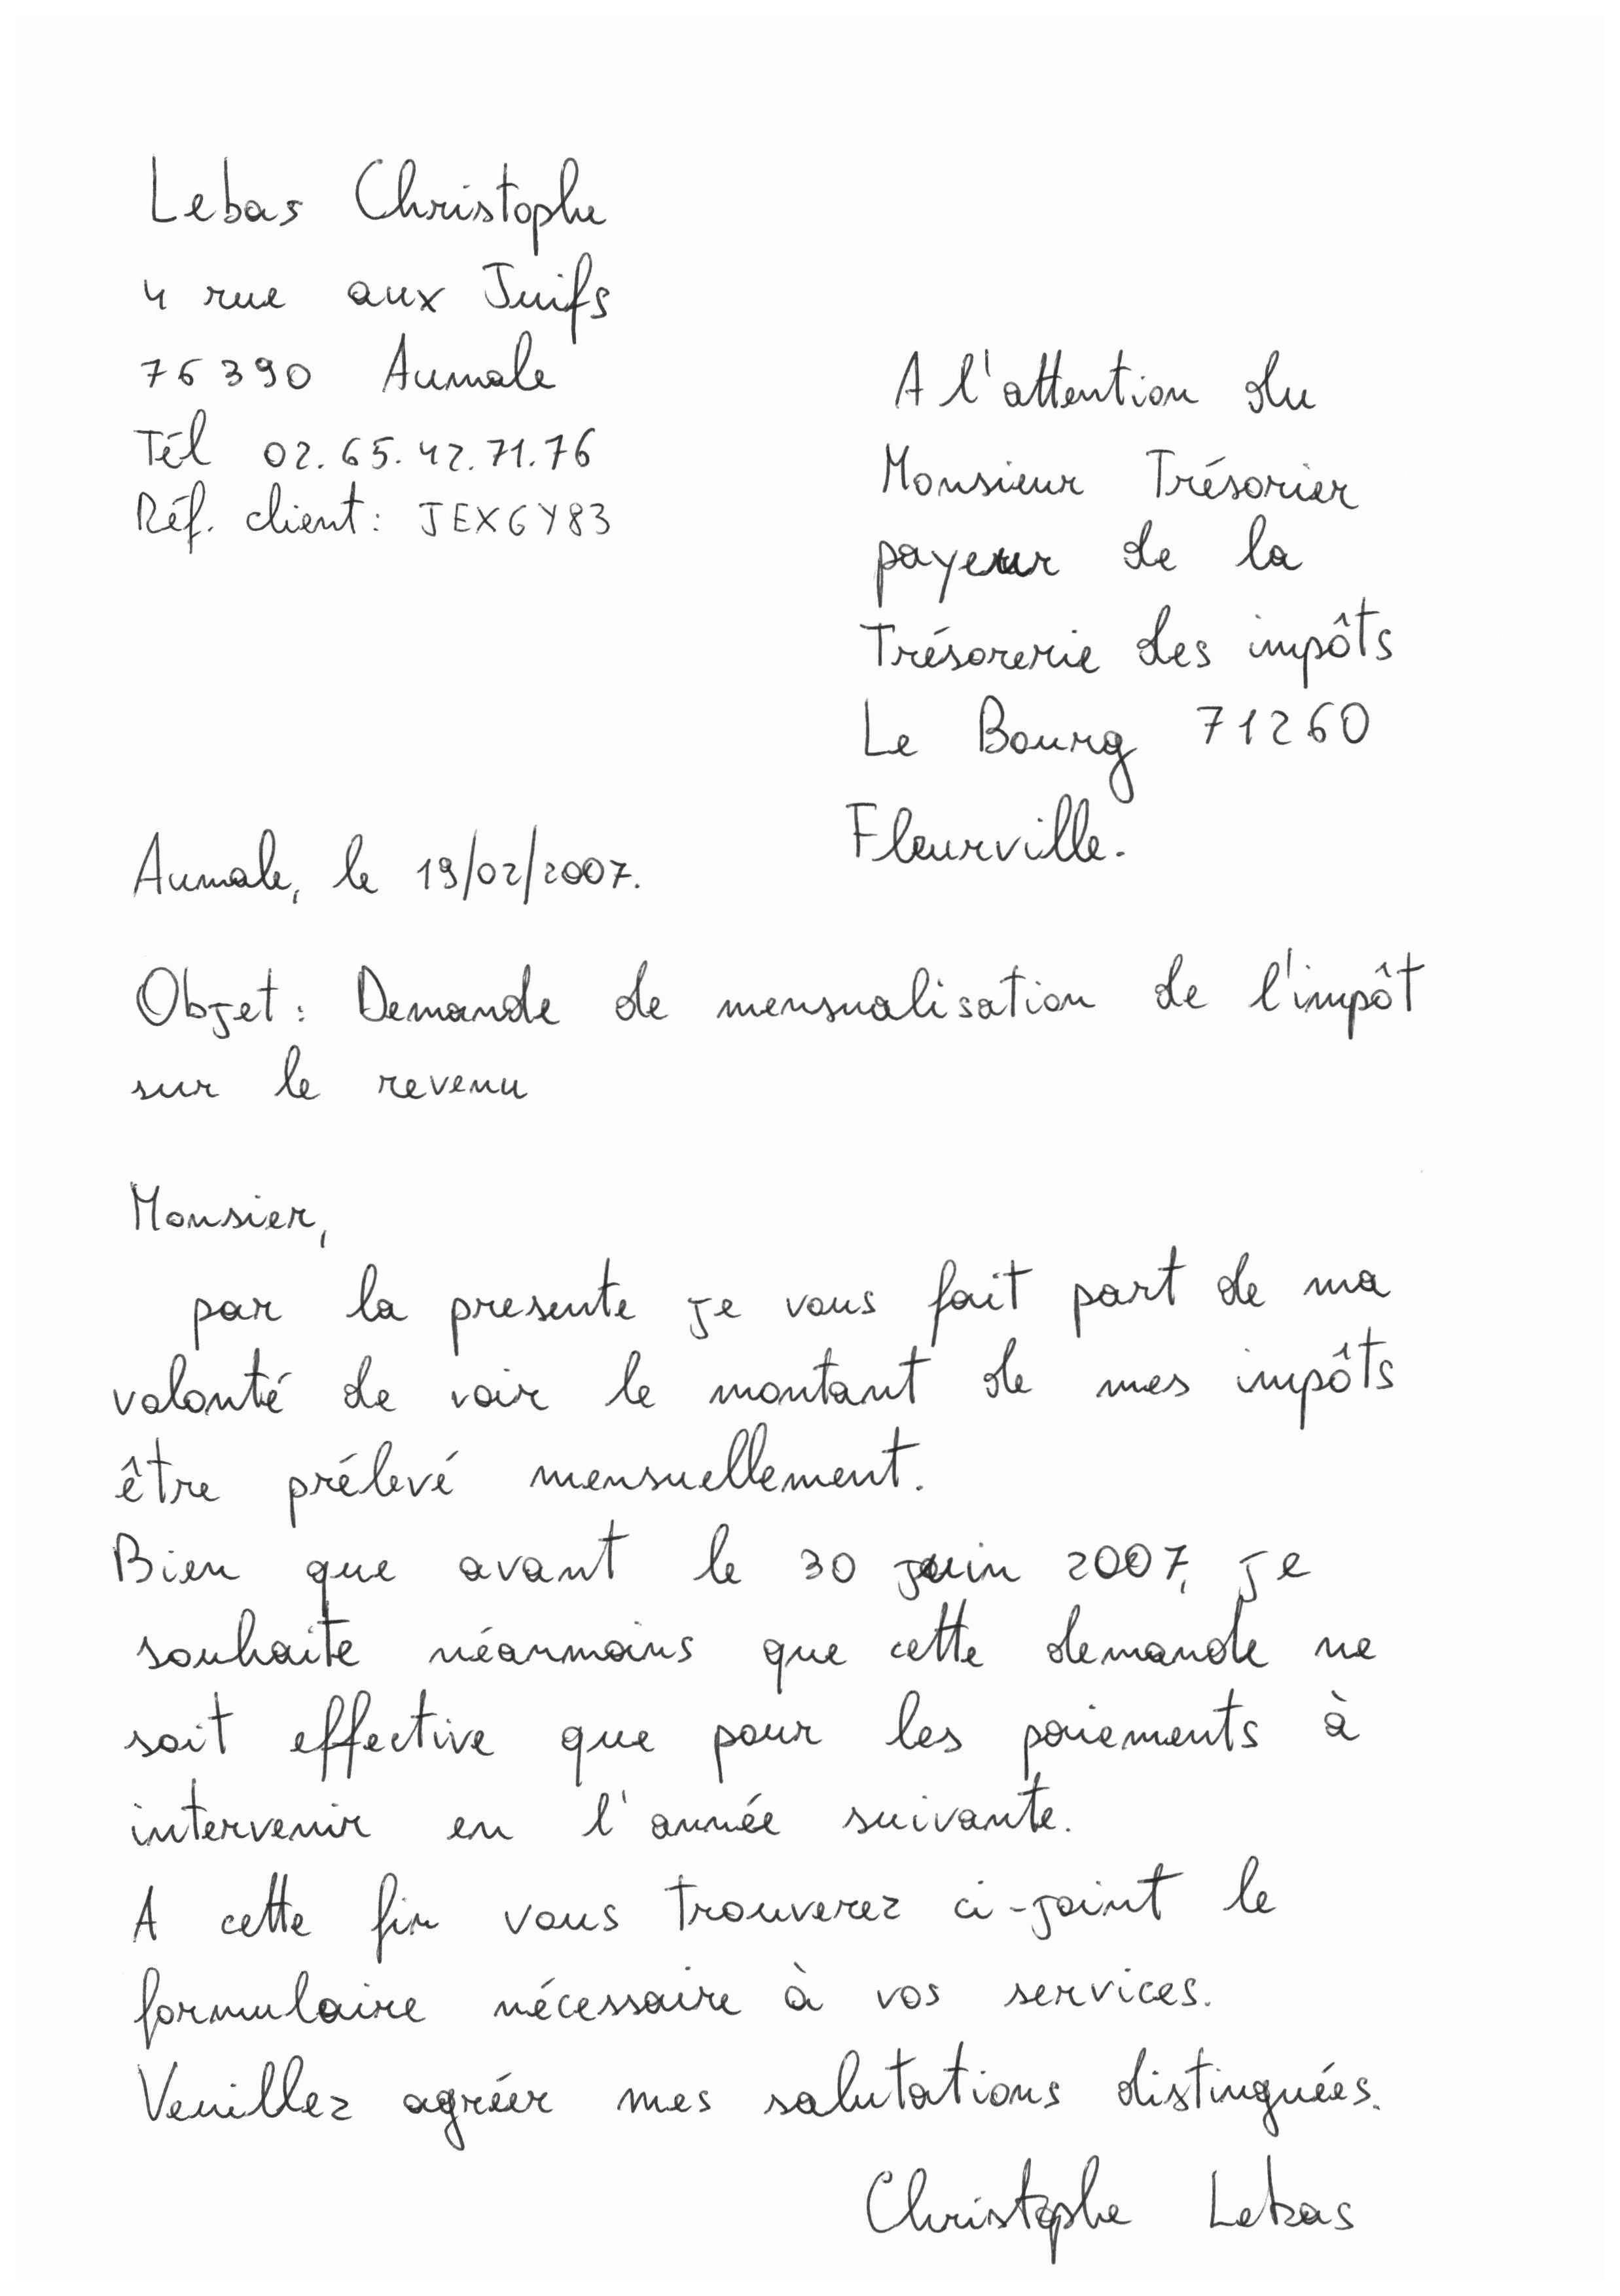 Lebas Christophe
4 rue aux Juifs
76390 Aumale
Tél 02.65.42.71.76
Réf. client : JEXGY83
A l'attention du
Monsieur Trésorier
payeur de la
Trésorerie des impôts
Le Bourg 71260
Fleurville.
Aumale, le 19/02/2007.
Objet : Demande de mensualisation de l'impôt
sur le revenu
Monsier,
par la presente je vous fait part de ma
volonté de voir le montant de mes impôts
être prélevé mensuellement.
Bien que avant le 30 juin 2007, je
souhaite néanmoins que cette demande ne
soit effective que pour les paiements à
intervenir en l'année suivante.
A cette fin vous trouverez ci-joint le
formulaire nécessaire à vos services.
Veuillez agréer mes salutations distinguées.
Christophe Lebas